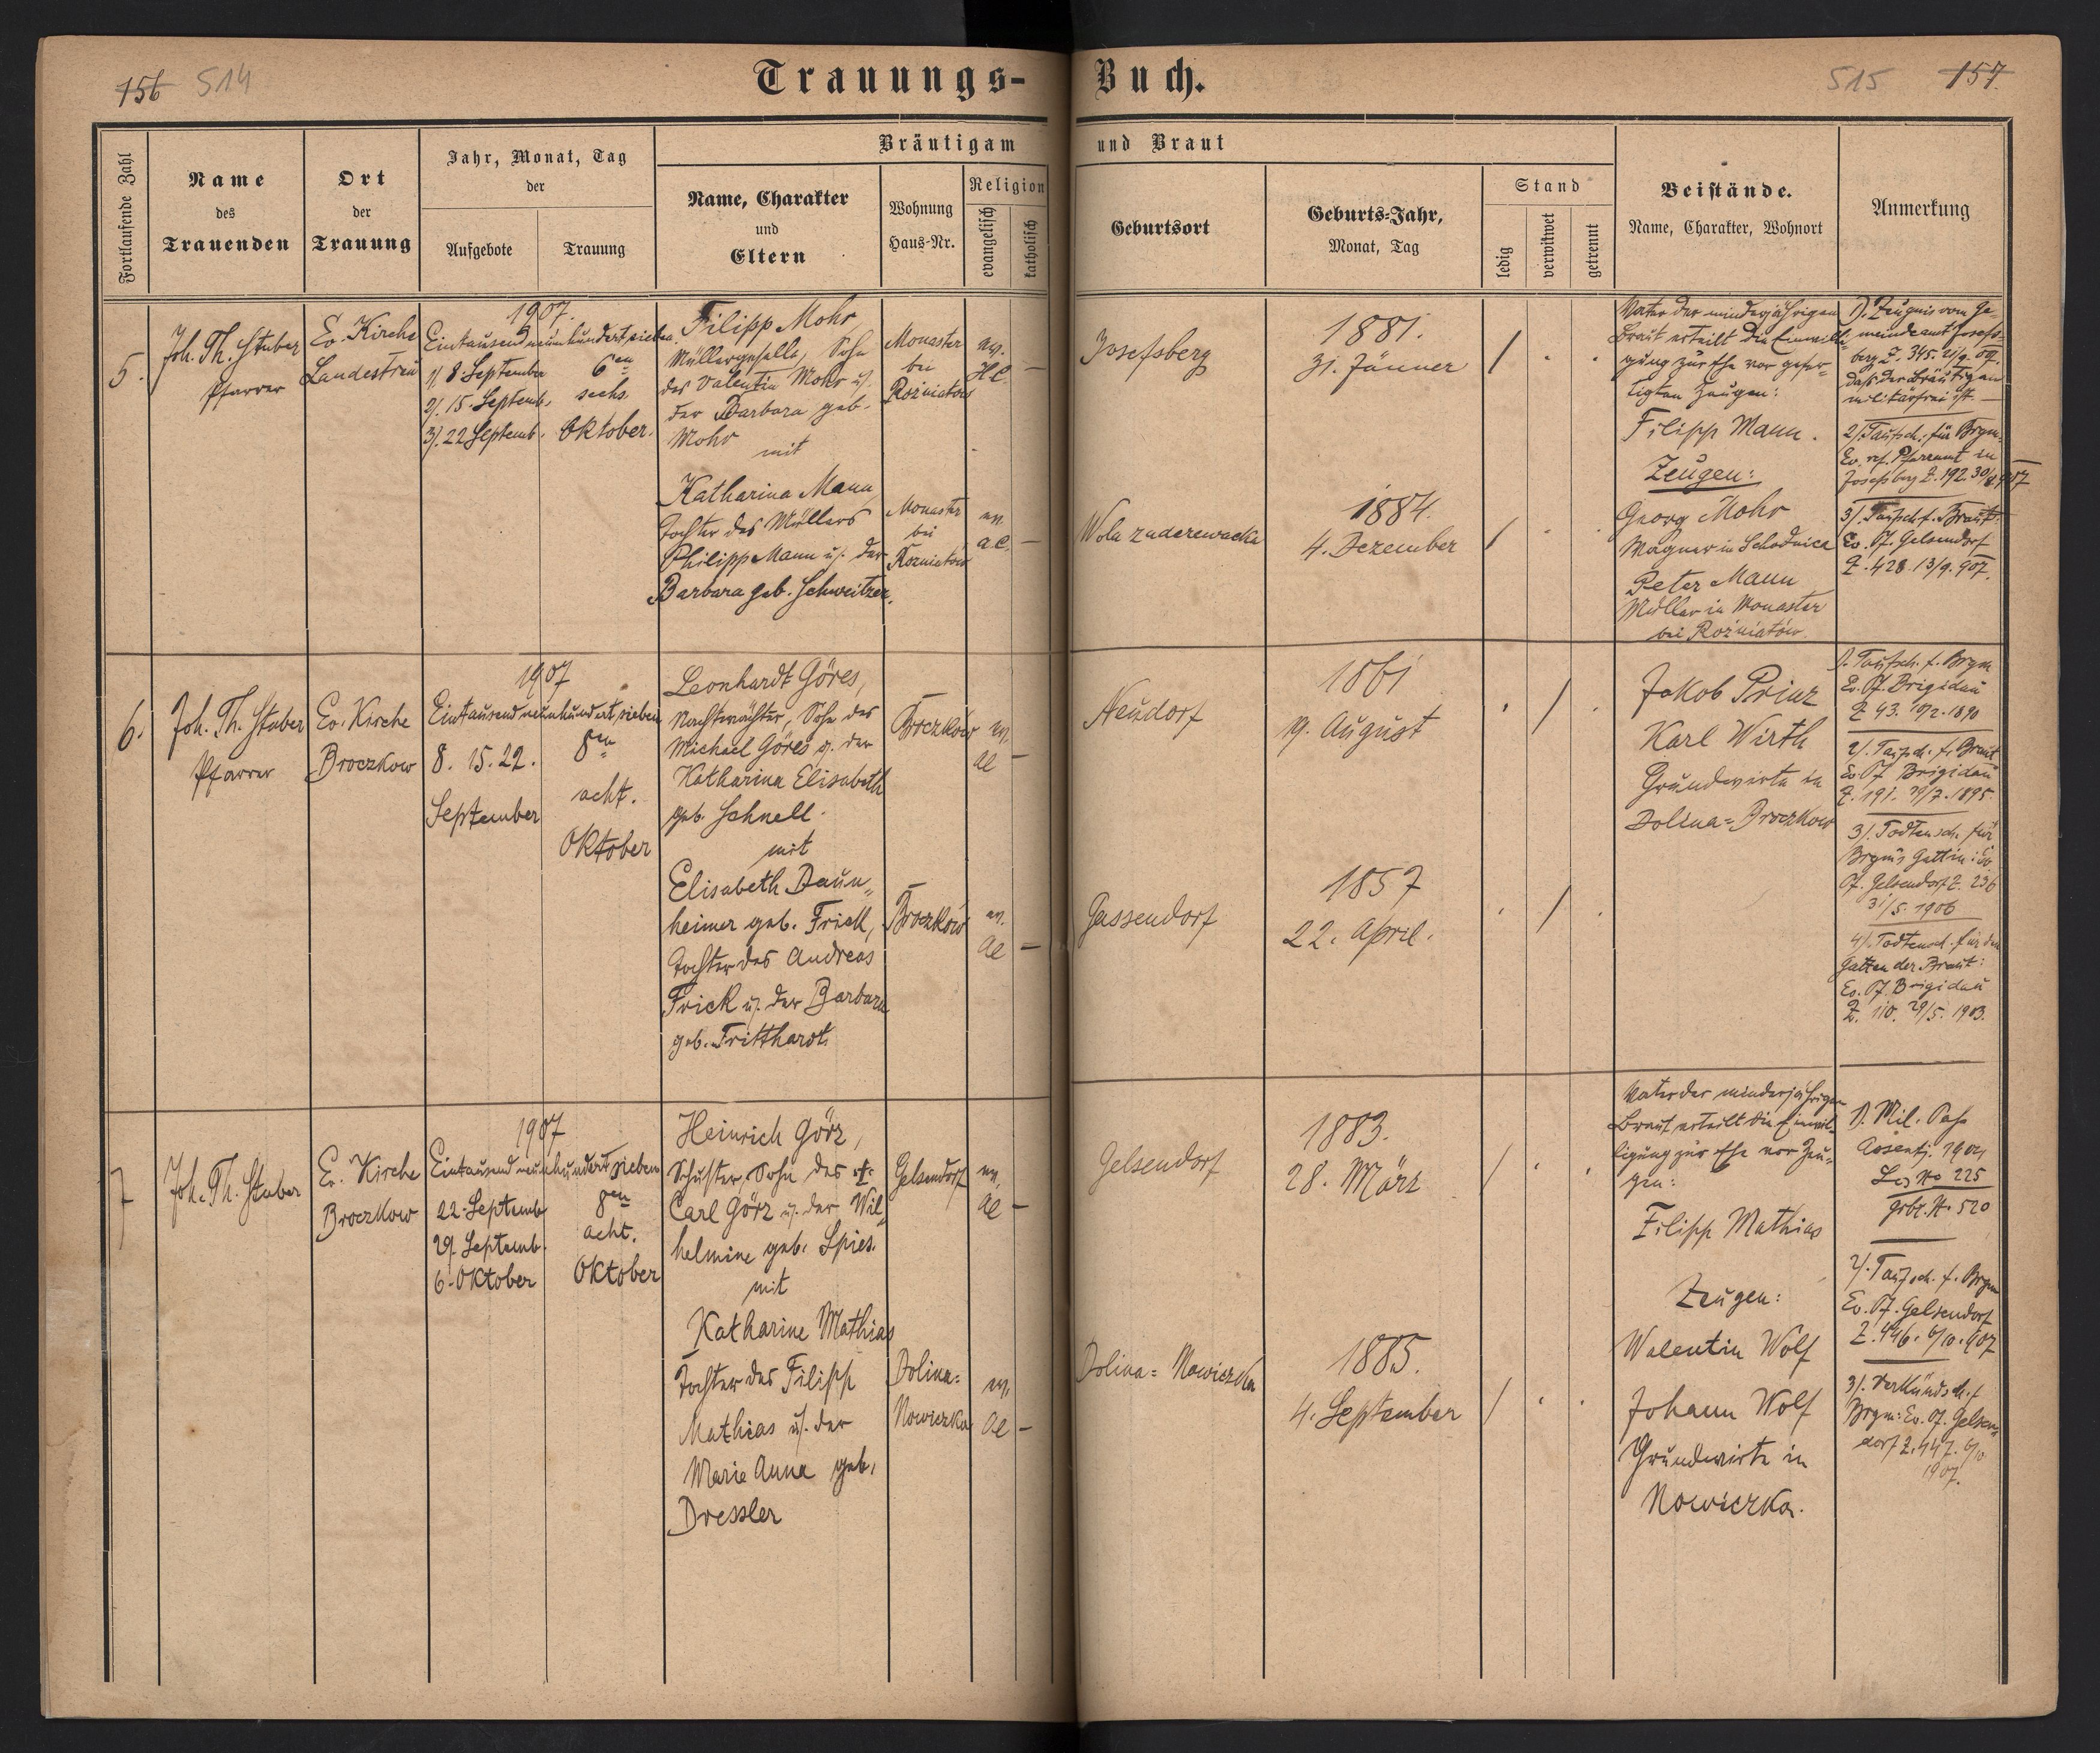 156 514
Trauungs- Buch.
515 157.
Fortlaufende Zahl
Name
des
Trauenden
Ort
der
Trauung
Jahr, Monat, Tag
der
Aufgebote
Trauung
Bräutigam und Braut
Name, Charakter
und
Eltern
Wohnung
Haus-Nr.
Religion
evangelisch
katholisch
Geburtsort
Geburts-Jahr,
Monat, Tag
Stand
ledig
verwitwet
getrennt
Beistände.
Name, Charakter, Wohnort
Anmerkung
5.
Joh. Th. Stuber
Pfarrer
Ev. Kirche
Landestreu
1907.
Eintausend neunhundert sieben
1/. 8. September
2/. 15. Septemb.
3/. 22 Septemb.
6en
sechs.
Oktober.
Filipp Mohr,
Müllergeselle, Sohn
des Valentin Mohr u/.
der Barbara geb.
Mohr
mit
Katharina Mann,
Tochter des Müllers
Philipp Mann u/. der
Barbara geb. Schweitzer.
Monaster
bei
Rożniatów
Monaster
bei
Rożniatów
ev.
H.C.
—
ev.
a.C.
—
Josefsberg
Wola zaderewacka
1881.
31. Jänner
1884.
4. Dezember
Vater der minderjährigen
Braut erteilt die Einwilli-
gung zur Ehe vor gefer-
tigten Zeugen:
Filipp Mann.
Zeugen:
Georg Mohr
Wagner in Schodnica
Peter Mann
Müller in Monaster
bei Rożniatów.
1). Zeugnis vom Ge-
meindeamt Josefs-
berg Z. 345. 21/9. 07.
daß der Bräutigam
militärfrei ist. —
2/. Taufsch. für Brgm.
Ev. ref. Pfarramt in
Josefsberg Z. 192. 30/8 907
3/. Taufsch f. Braut
Ev. Pf. Gelsendorf
Z. 428. 13/9. 907.
6.
Joh. Th. Stuber
Pfarrer
Ev. Kirche
Broczkow
1907
Eintausend neunhundert sieben
8. 15. 22.
September
8en
acht.
Oktober
Leonhardt Göres,
Nachtwächter, Sohn des
Michael Göres u. der
Katharina Elisabeth
geb. Schnell.
mit
Elisabeth Daun-
heimer geb. Frick,
Tochter des Andreas
Frick u/. der Barbara
geb. Tritthardt.
Broczków
Broczków
ev.
ac
—
ev.
ac
—
Neudorf
Gassendorf
1861
19. August
1857
22. April.
Jakob Prinz
Karl Wirth
Grundwirte in
Dolina-Broczkow
1. Taufsch. f. Brgm
Ev. Pf. Brigidau
Z 43. 10/2. 1890
2/. Taufsch. f. Braut
Ev. Pf Brigidau
Z. 191. 29/7. 1895.
3/. Todtensch. für
Brgm's Gattin: Ev
Pf. Gelsendorf Z. 236
31/5. 1906
4/. Todtensch. für den
Gatten der Braut:
Ev. Pf. Brigidau
Z. 110. 29/5. 1903.
7
Joh. Th. Stuber
Ev. Kirche
Broczkow
1907
Eintausend neunhundert sieben
22. Septemb
29. Septemb.
6. Oktober
8en
acht.
Oktober
Heinrich Görz,
Schuster, Sohn des †
Carl Görz u/. der Wil-
helmine geb. Spies.
mit
Katharine Mathias
Tochter des Filipp
Mathias u/. der
Marie Anna geb.
Dressler
Gelsendorf
Dolina-
Nowiczka
ev.
ac
—
ev.
ac
—
Gelsendorf
Dolina-Nowiczka
1883.
28. März
1885.
4. September
Vater der minderjährigen
Braut erteilt die Einwil-
ligung zur Ehe vor Zeu-
gen:
Filipp Mathias
Zeugen:
Valentin Wolf
Johann Wolf
Grundwirte in
Nowiczka.
1). Mil. Pass
Assentj. 1904
Los No 225
Grbl. N. 520
2/. Taufsch. f. Brgm
Ev. Pf. Gelsendorf
Z. 446. 6/10. 907
3/. Verkündsch. f
Brgm: Ev. Pf. Gelsen-
dorf Z. 447. 6/10
1907.